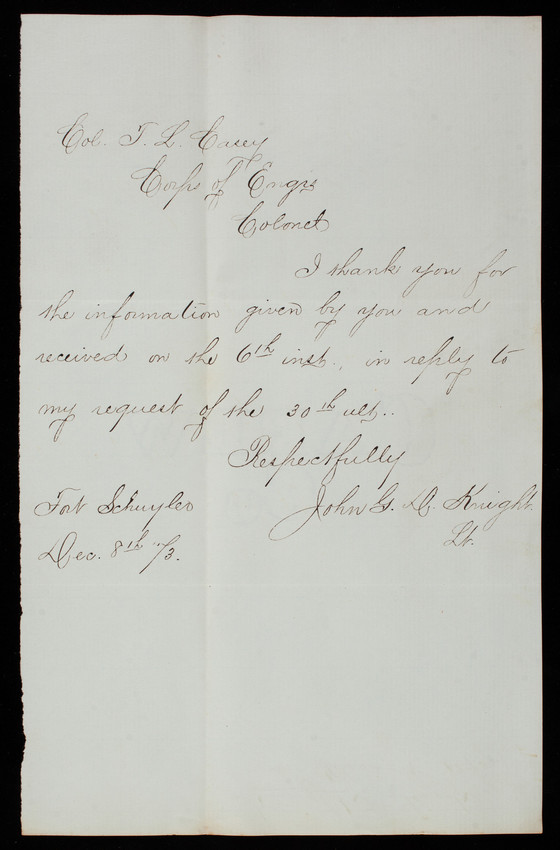 Col. T. L. Casey
Corps of Engrs
Colonel
I thank you for
the information given by you and
received on the 6th inst., in reply to
my request of the 30th ult..
Respectfully
John G. D. Knight.
Lt.
Fort Schuyler
Dec. 8th /73.